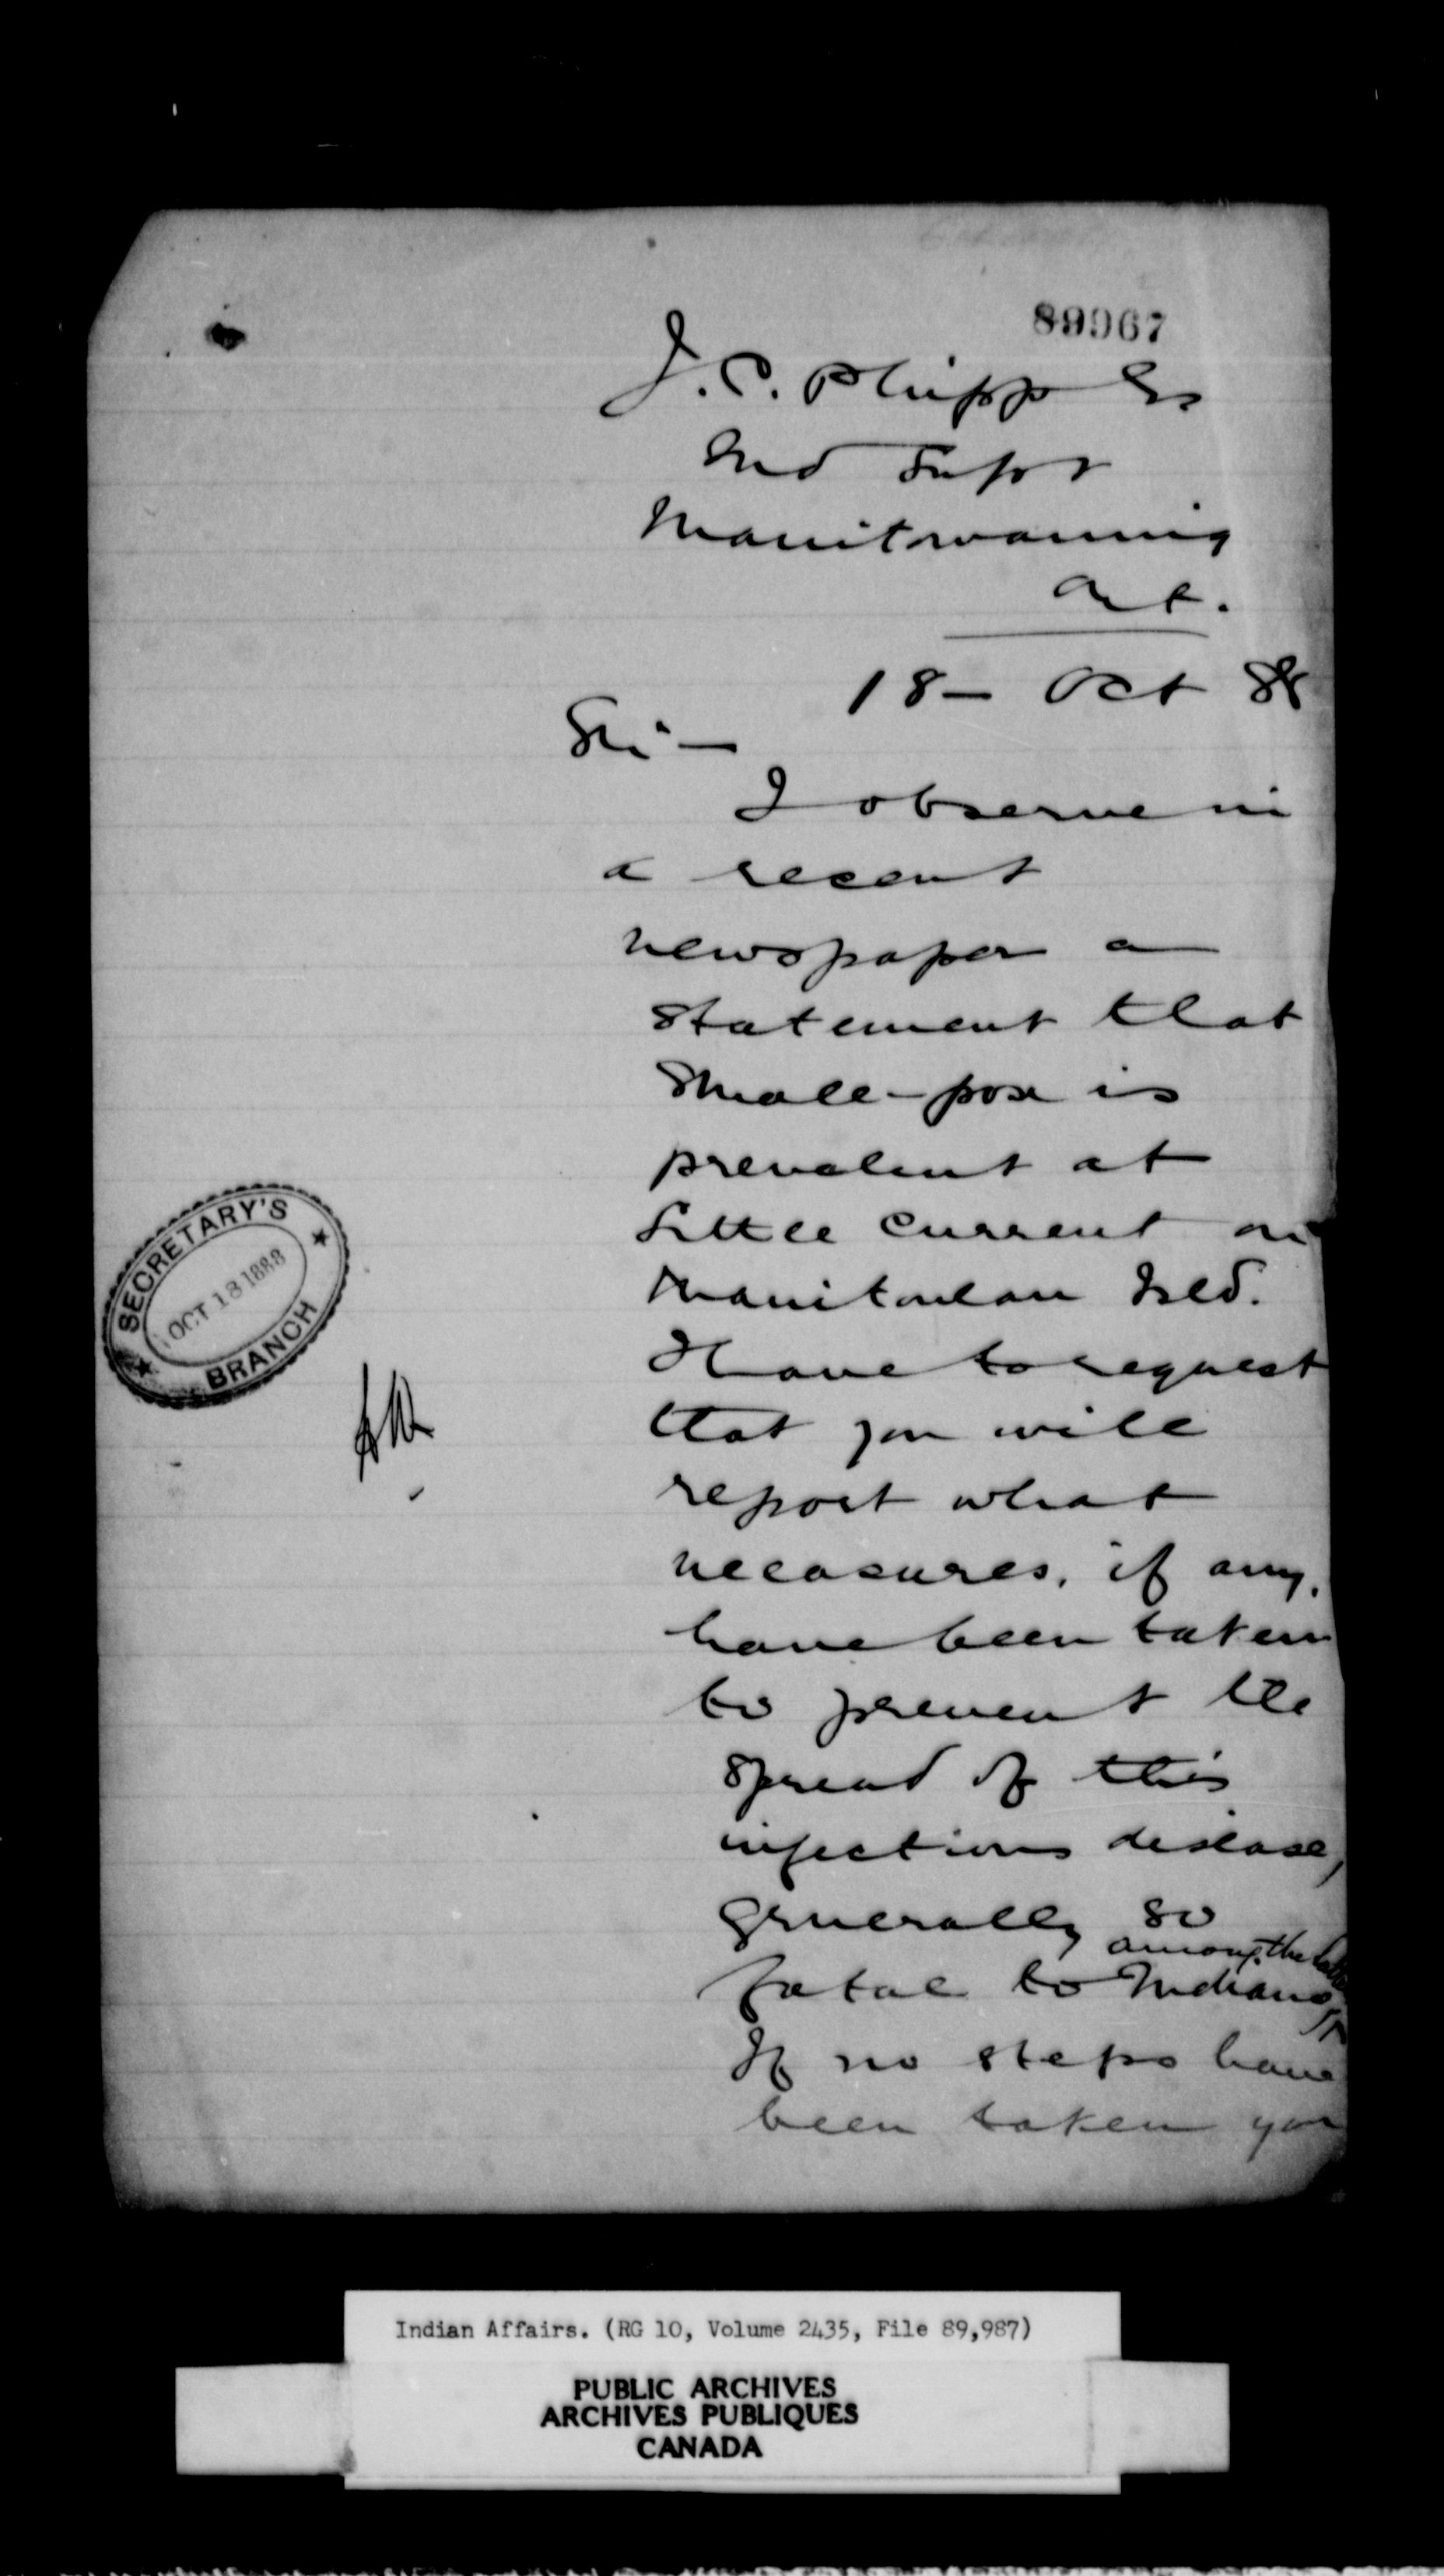 89967
J. C. Phipps Es
Ind Supt
Manitowaning
Ont.
18 - Oct 88
Sir -
I observe in
a recent
newspaper a
statement that
Small-pox is
prevalent at
Little Current on
Manitoulin Isld.
I have to request
that you will
report what
measures, if any,
have been taken
to prevent the
spread of this
infectious disease,
generally so
among the
fatal to Indians
If no steps have
been taken you
SECRETARY'S
OCT 18 1888
BRANCH
Indian Affairs. (RG 10, Volume 2435, File 89,987)
PUBLIC ARCHIVES
ARCHIVES PUBLIQUES
CANADA